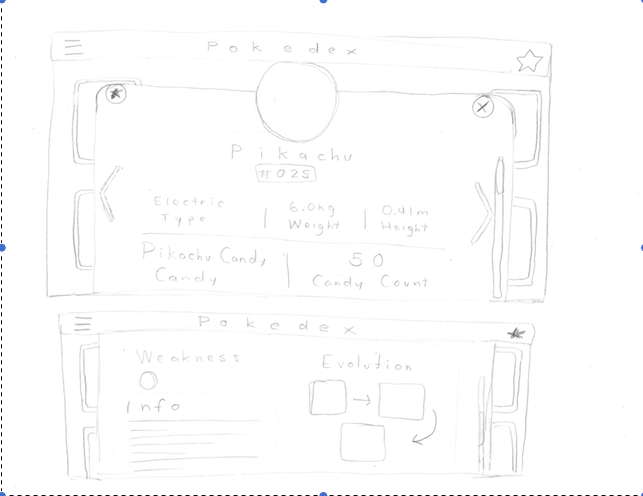 Pokedex
Pikachu
#025
Electric
Type
6.0kg
Weight
0.41m
Height
Pikachu Candy
Candy
50
Candy Count
Pokedex
Weakness
Evolution
Info